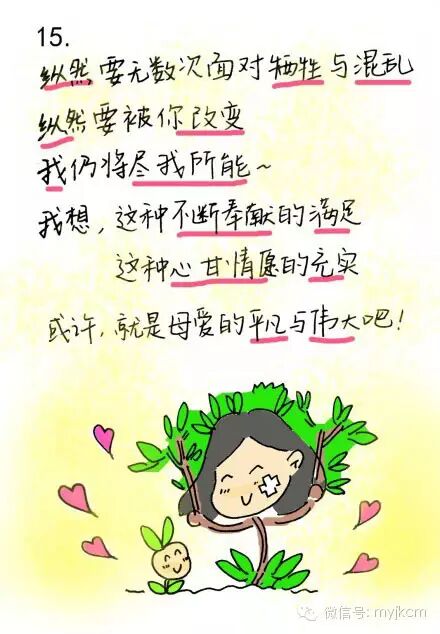 15.
纵然要无数次面对牺牲与混乱
纵然要被你改变
我仍将尽我所能~
我想，这种不断奉献的满足
这种心甘情愿的充实
或许，就是母爱的平凡与伟大吧！
微信号: myjkcm